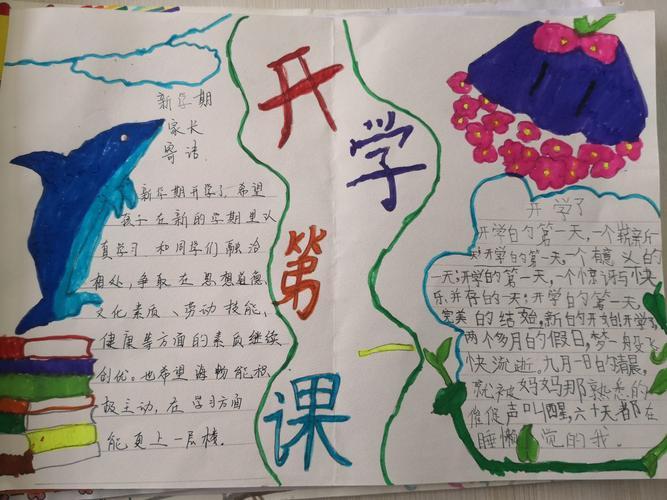 新学期
家长
寄语
开
学
第
一
课
新学期开学了,希望
孩子在新的学期里认
真学习 和同学们融洽
相处,争取在思想道德、
文化素质、劳动技能、
健康等方面的素质继续
创优。也希望海畅能积
极主动,在学习方面
能更上一层楼.
开学了
开学的第一天,一个崭新
开学的第一天,一个有意义的
一天;开学的第一天,一个惊讶与快
乐,并存的一天;开学的第一天,
完美的结始,新的开始,开学
两个多月的假日,梦一般飞
快流逝。九月一日的清晨,
就被妈妈那熟悉的
催促声叫醒,六十天都在
睡懒觉的我。